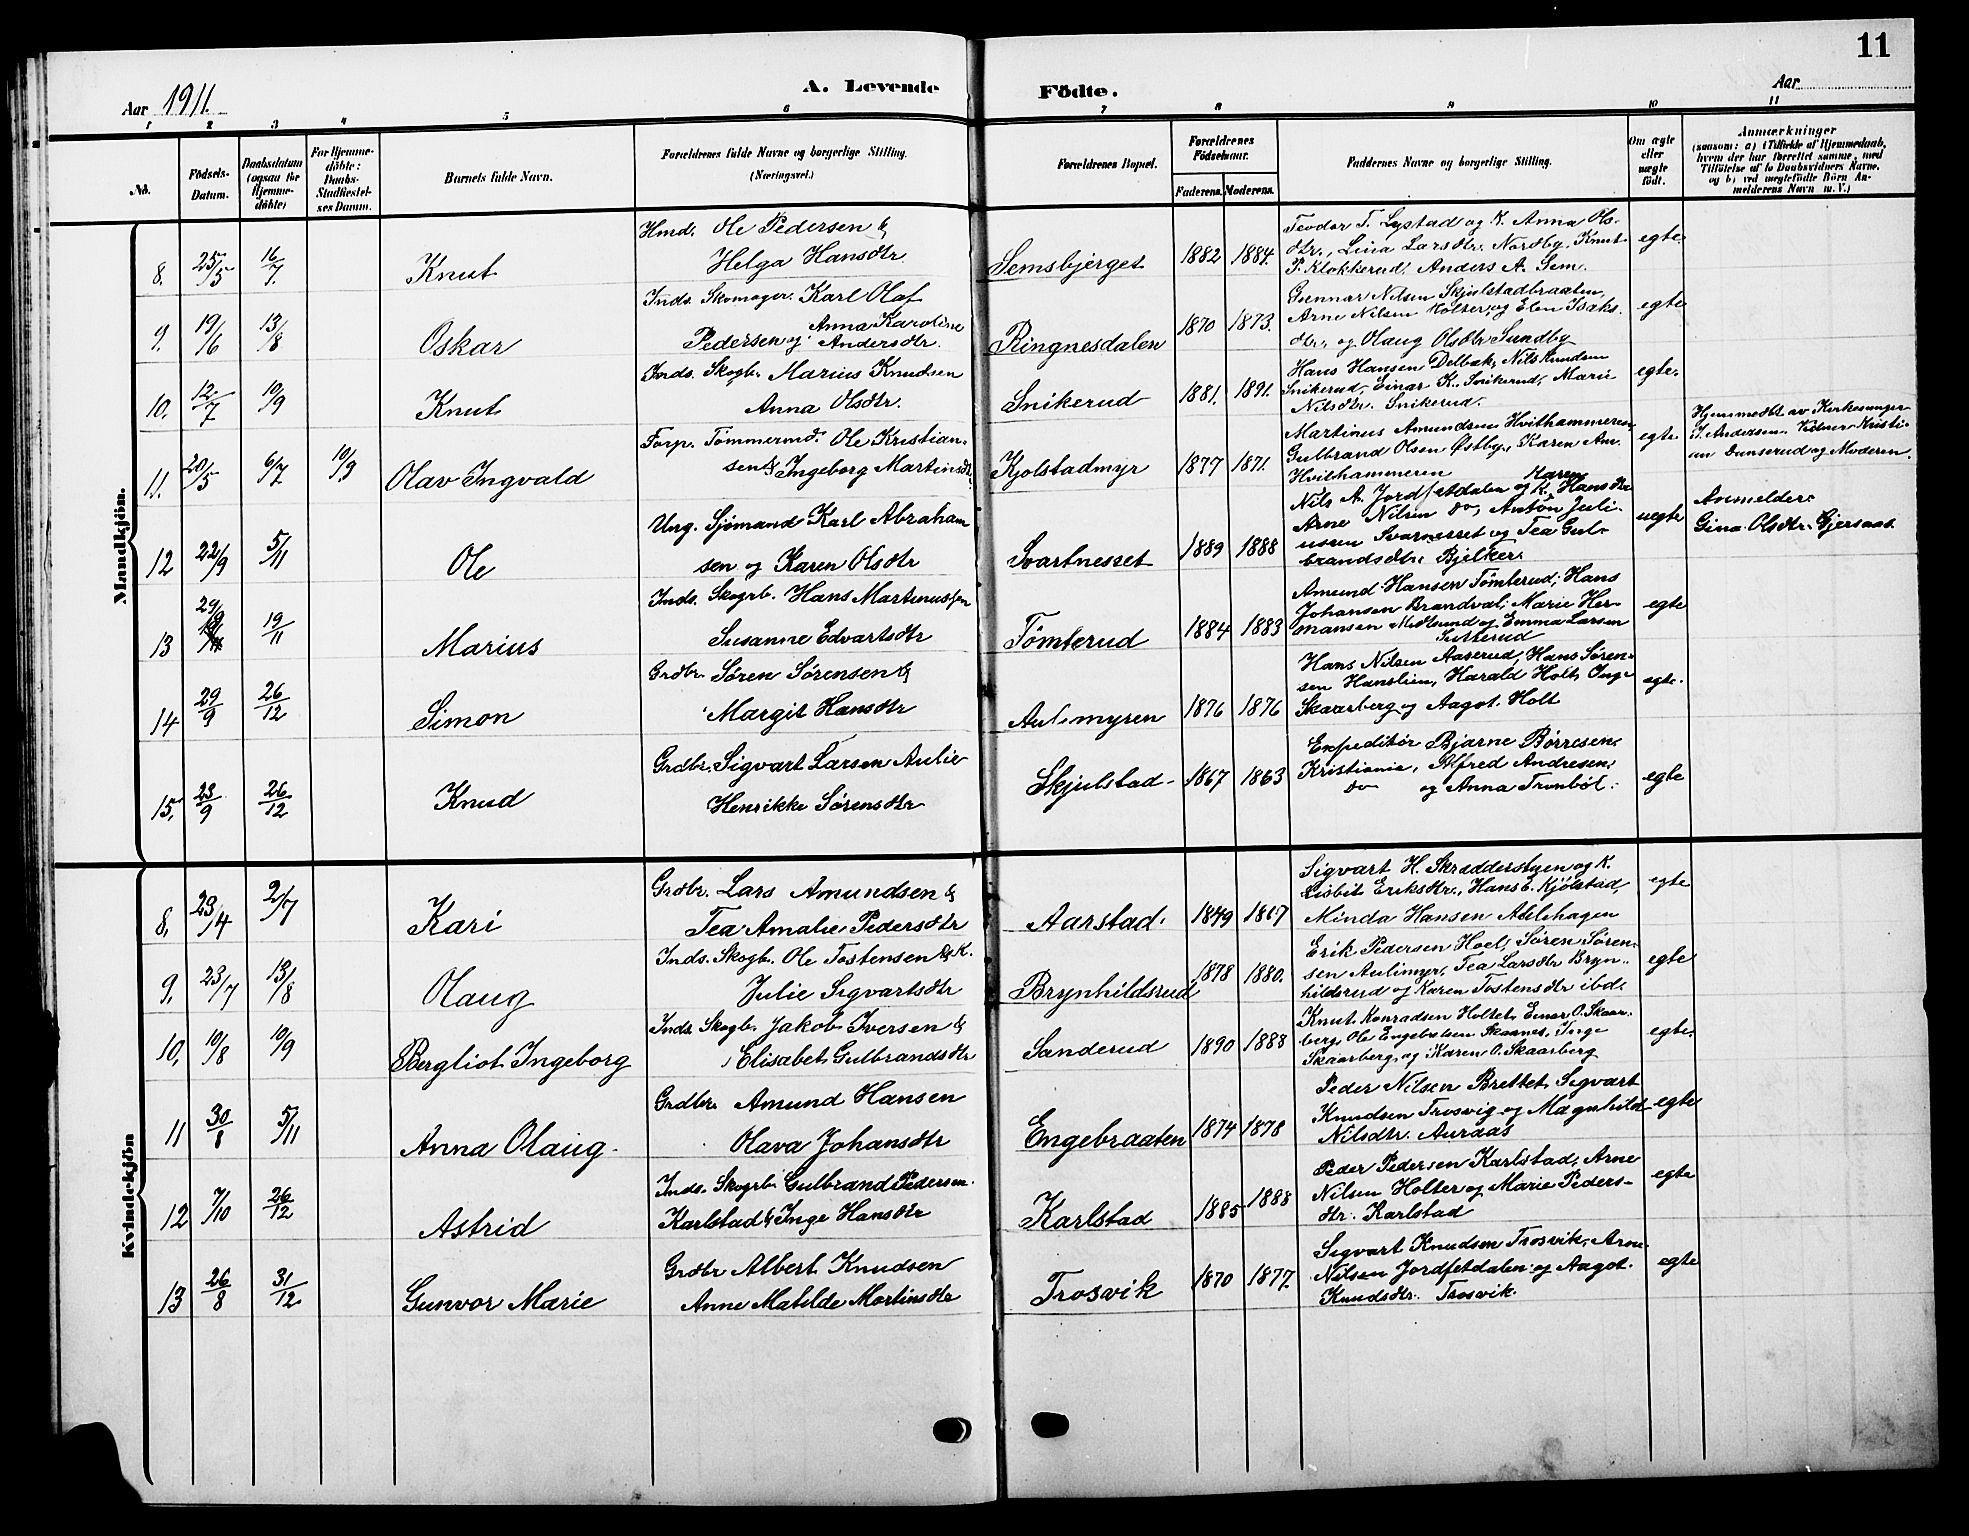 11
Aar 1911.
A. Levende
Födte.
Aar
1 2 3 4 5 6 7 8 9 10 11
No.
Födsels-
Datum.
Daabsdatum
(ogsaa for
Hjemme-
döbte)
For Hjemme-
döbte:
Daabs-
Stadfæstel-
ses Datum.
Barnets fulde Navn.
Forældrenes fulde Navne og borgerlige Stilling.
(Næringsvei.)
Forældrenes Bopæl.
Forældrenes
Födselsaar.
Faderens. Moderens.
Faddernes Navne og borgerlige Stilling.
Om ægte
eller
uægte
födt.
Anmærkninger
(saasom: a) i Tilfælde af Hjemmedaab,
hvem der har forrettet samme, med
Tilföielse af to Daabsvidners Navne,
og b) ved uægtefödte Börn An-
melderens Navn m. V.)
Mandkjön.
8. 25/5 16/7. Knut
Hmd. Ole Pedersen &
Helga Hansdtr
Semsbjerget 1882 1884.
Teodor T. Lystad og K. Anna Ols-
dtr., Lina Larsdtr. Nordby. Knut
P. Klokkerud, Anders A. Sem.
egte
9. 19/6 13/8 Oskar
Inds. Skomager. Karl Olaf
Pedersen og Anna Karoline
Andersdtr.
Ringnesdalen 1870 1873.
Gunnar Nilsen Skjulstadbraaten,
Arne Nilsen Holter, og Elen Isaks-
dtr., og Olaug Olsdtr Sundby
egte
10. 12/7 10/9 Knut
Inds. Skogb. Marius Knudsen
Anna Olsdtr.
Snikerud 1881. 1891.
Hans Hansen Delbæk, Nils Knudsen
Snikerud, Einar K. Snikerud, Marie
Nilsdtr. Snikerud.
egte.
11. 20/5 6/7 10/9 Olav Ingvald
Forp. Tømmermd. Ole Kristian-
sen & Ingeborg Martinsdtr.
Kjolstadmyr 1877 1871.
Martinus Amundsen Hvithammeren
Gulbrand Olsen Østby, Karen Am.
Hvithammeren
egte
Hjemmedbt. av Kirkesanger
J. Andersen. Vidner Kristi-
an Dunserud og Moderen.
12 22/9 5/11 Ole
Ung. Sjømand Karl Abraham
sen og Karen Olsdtr
Svartnesset 1889 1888
Nils A. Jordfetdalen og K. Karen Hansdtr
Arne Nilsen do, Anton Juli-
ussen Svarnesset og Tea Gul-
brandsdtr. Bjelker.
uegte
Anmelder
Gina Olsdtr. Gjersaas.
13 29/9 19/11 Marius
Inds. Skogrb. Hans Martinussen
Susanne Edvartsdtr
Tømterud 1884 1883
Amund Hansen Tømterud, Hans
Johansen Brandval, Marie Her-
mansen Midtsund og Emma Larsen
egte
14 29/9 26/12 Simon
Grdbr. Søren Sørensen &
Margit Hansdtr
Aulimyren 1876 1876
Hans Nilsen Aaserud, Hans Søren-
sen Hanslien, Harald Holt, Inge
Skaarberg og Aagot Holt
egte.
15. 23/9 26/12 Knud
Grdbr. Sigvart Larsen Aulie
Henrikke Sørensdtr
Skjulstad 1867 1863
Expeditør Bjarne Børresen,
Kristiania, Alfred Andresen,
do og Anna Tronbøl.
egte
Kvindekjön
8. 23/4 2/7 Kari
Grdbr. Lars Amundsen &
Tea Amalie Pedersdtr
Aarstad. 1849 1867
Sigvart H. Skrædderstuen og K.
Lisbet Eriksdtr., Hans E. Kjølstad,
Minda Hansen Adelshagen
egte
9. 23/7 13/8 Olaug
Inds. Skogb. Ole Tostensen & K.
Julie Sigvartsdtr
Brynhildsrud 1878 1880.
Erik Pedersen Hoel, Søren Søren-
sen Aulimyr, Tea Larsdtr Bryn-
hildsrud og Karen Tostensdtr ibd.
egte
10. 10/8 10/9 Bergliot Ingeborg
Inds. Skogb. Jakob Iversen &
Elisabet Gulbrandsdtr
Sanderud 1890 1888
Knut Konradsen Holtet, Einar O. Skaar-
berg, Ole Engebretsen Skaanes, Inge
Skaarberg, og Karen O. Skaarberg
egte.
11 30/8 5/11 Anna Olaug.
Grdbr. Amund Hansen
Olava Johansdtr
Engebraaten 1874 1878
Peder Nilsen Brettet, Sigvart
Knudsen Trosvig og Magnhild
Nilsdtr. Auraas
egte
12 7/10 26/12 Astrid
Inds. Skogrb. Gulbrand Pedersen
Karlstad & Inge Hansdtr
Karlstad 1885 1888
Peder Pedersen Karlstad, Arne
Nilsen Holter og Marie Peders-
dtr. Karlstad
egte
13 26/8 31/12 Gunvor Marie
Grdbr Albert Knudsen
Anne Matilde Martinsdtr
Trosvik 1870 1877.
Sigvart Knudsen Trosvik, Arne
Nilsen Jordfetdalen og Aagot
Knudsdtr. Trosvik.
egte